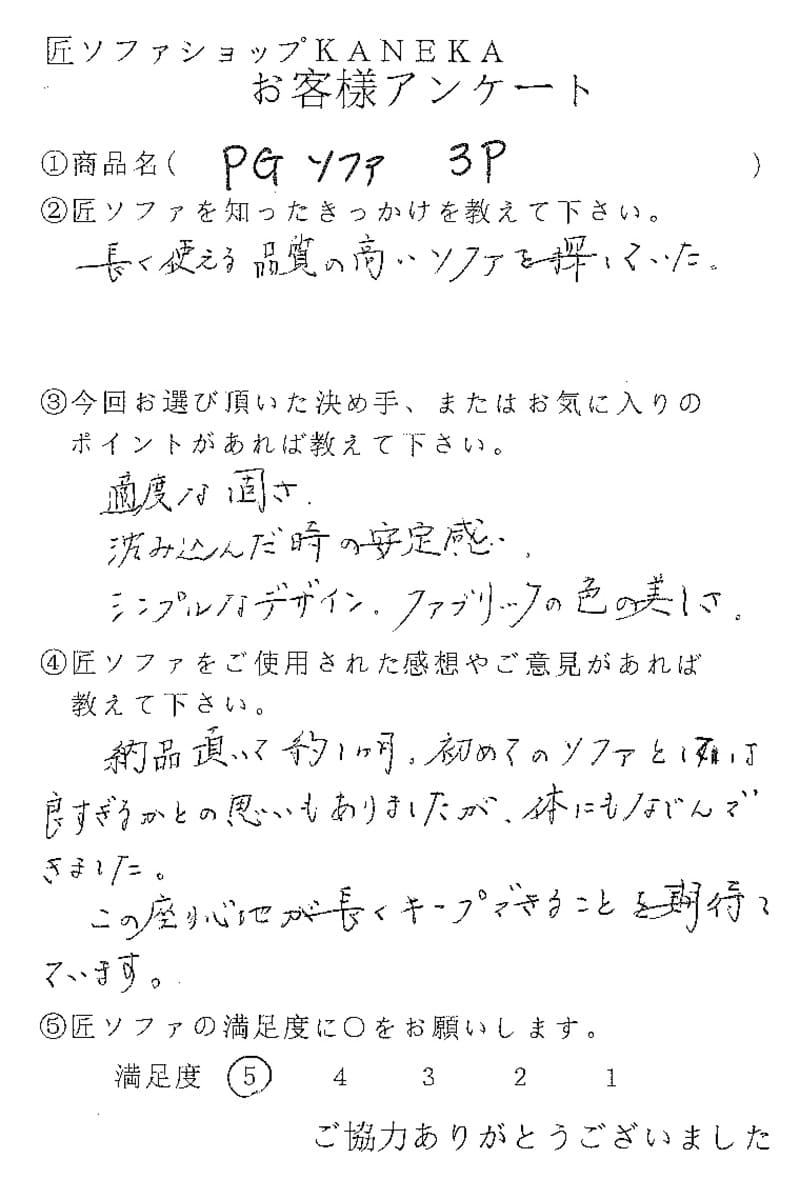 匠ソファショップKANEKA
お客様アンケート
①商品名( PGソファ 3P )
②匠ソファを知ったきっかけを教えて下さい。
長く使える品質の高いソファを探していた。
③今回お選び頂いた決め手、またはお気に入りの
ポイントがあれば教えて下さい。
適度な固さ.
沈み込んだ時の安定感.
シンプルなデザイン.ファブリックの色の美しさ.
④匠ソファをご使用された感想やご意見があれば
教えて下さい。
納品頂いて約1ヶ月。初めてのソファとしては
良すぎるかとの思いもありましたが、体にもなじんで
きました。
この座り心地が長くキープできることを期待し
ています。
⑤匠ソファの満足度に○をお願いします。
満足度 5 4 3 2 1
ご協力ありがとうございました